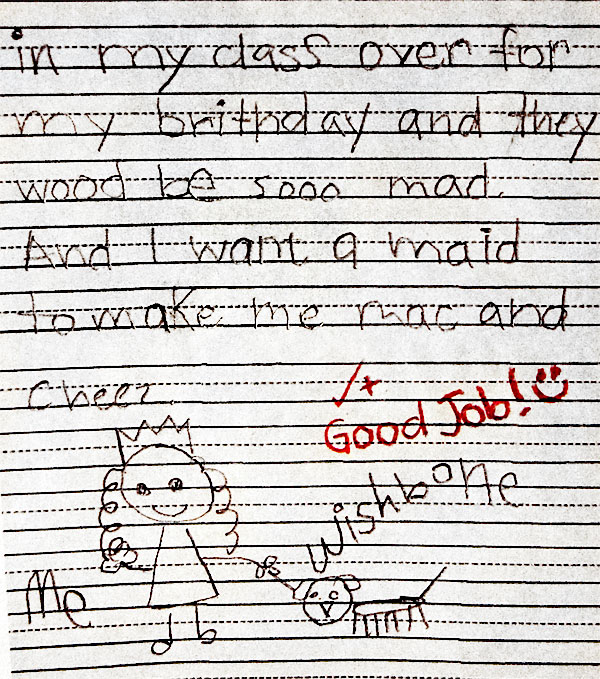 in my class over for
my brithday and they
wood be sooo mad.
And I want a maid
to make me mac and
cheez.
✓+
Good Job!
wishbone
Me